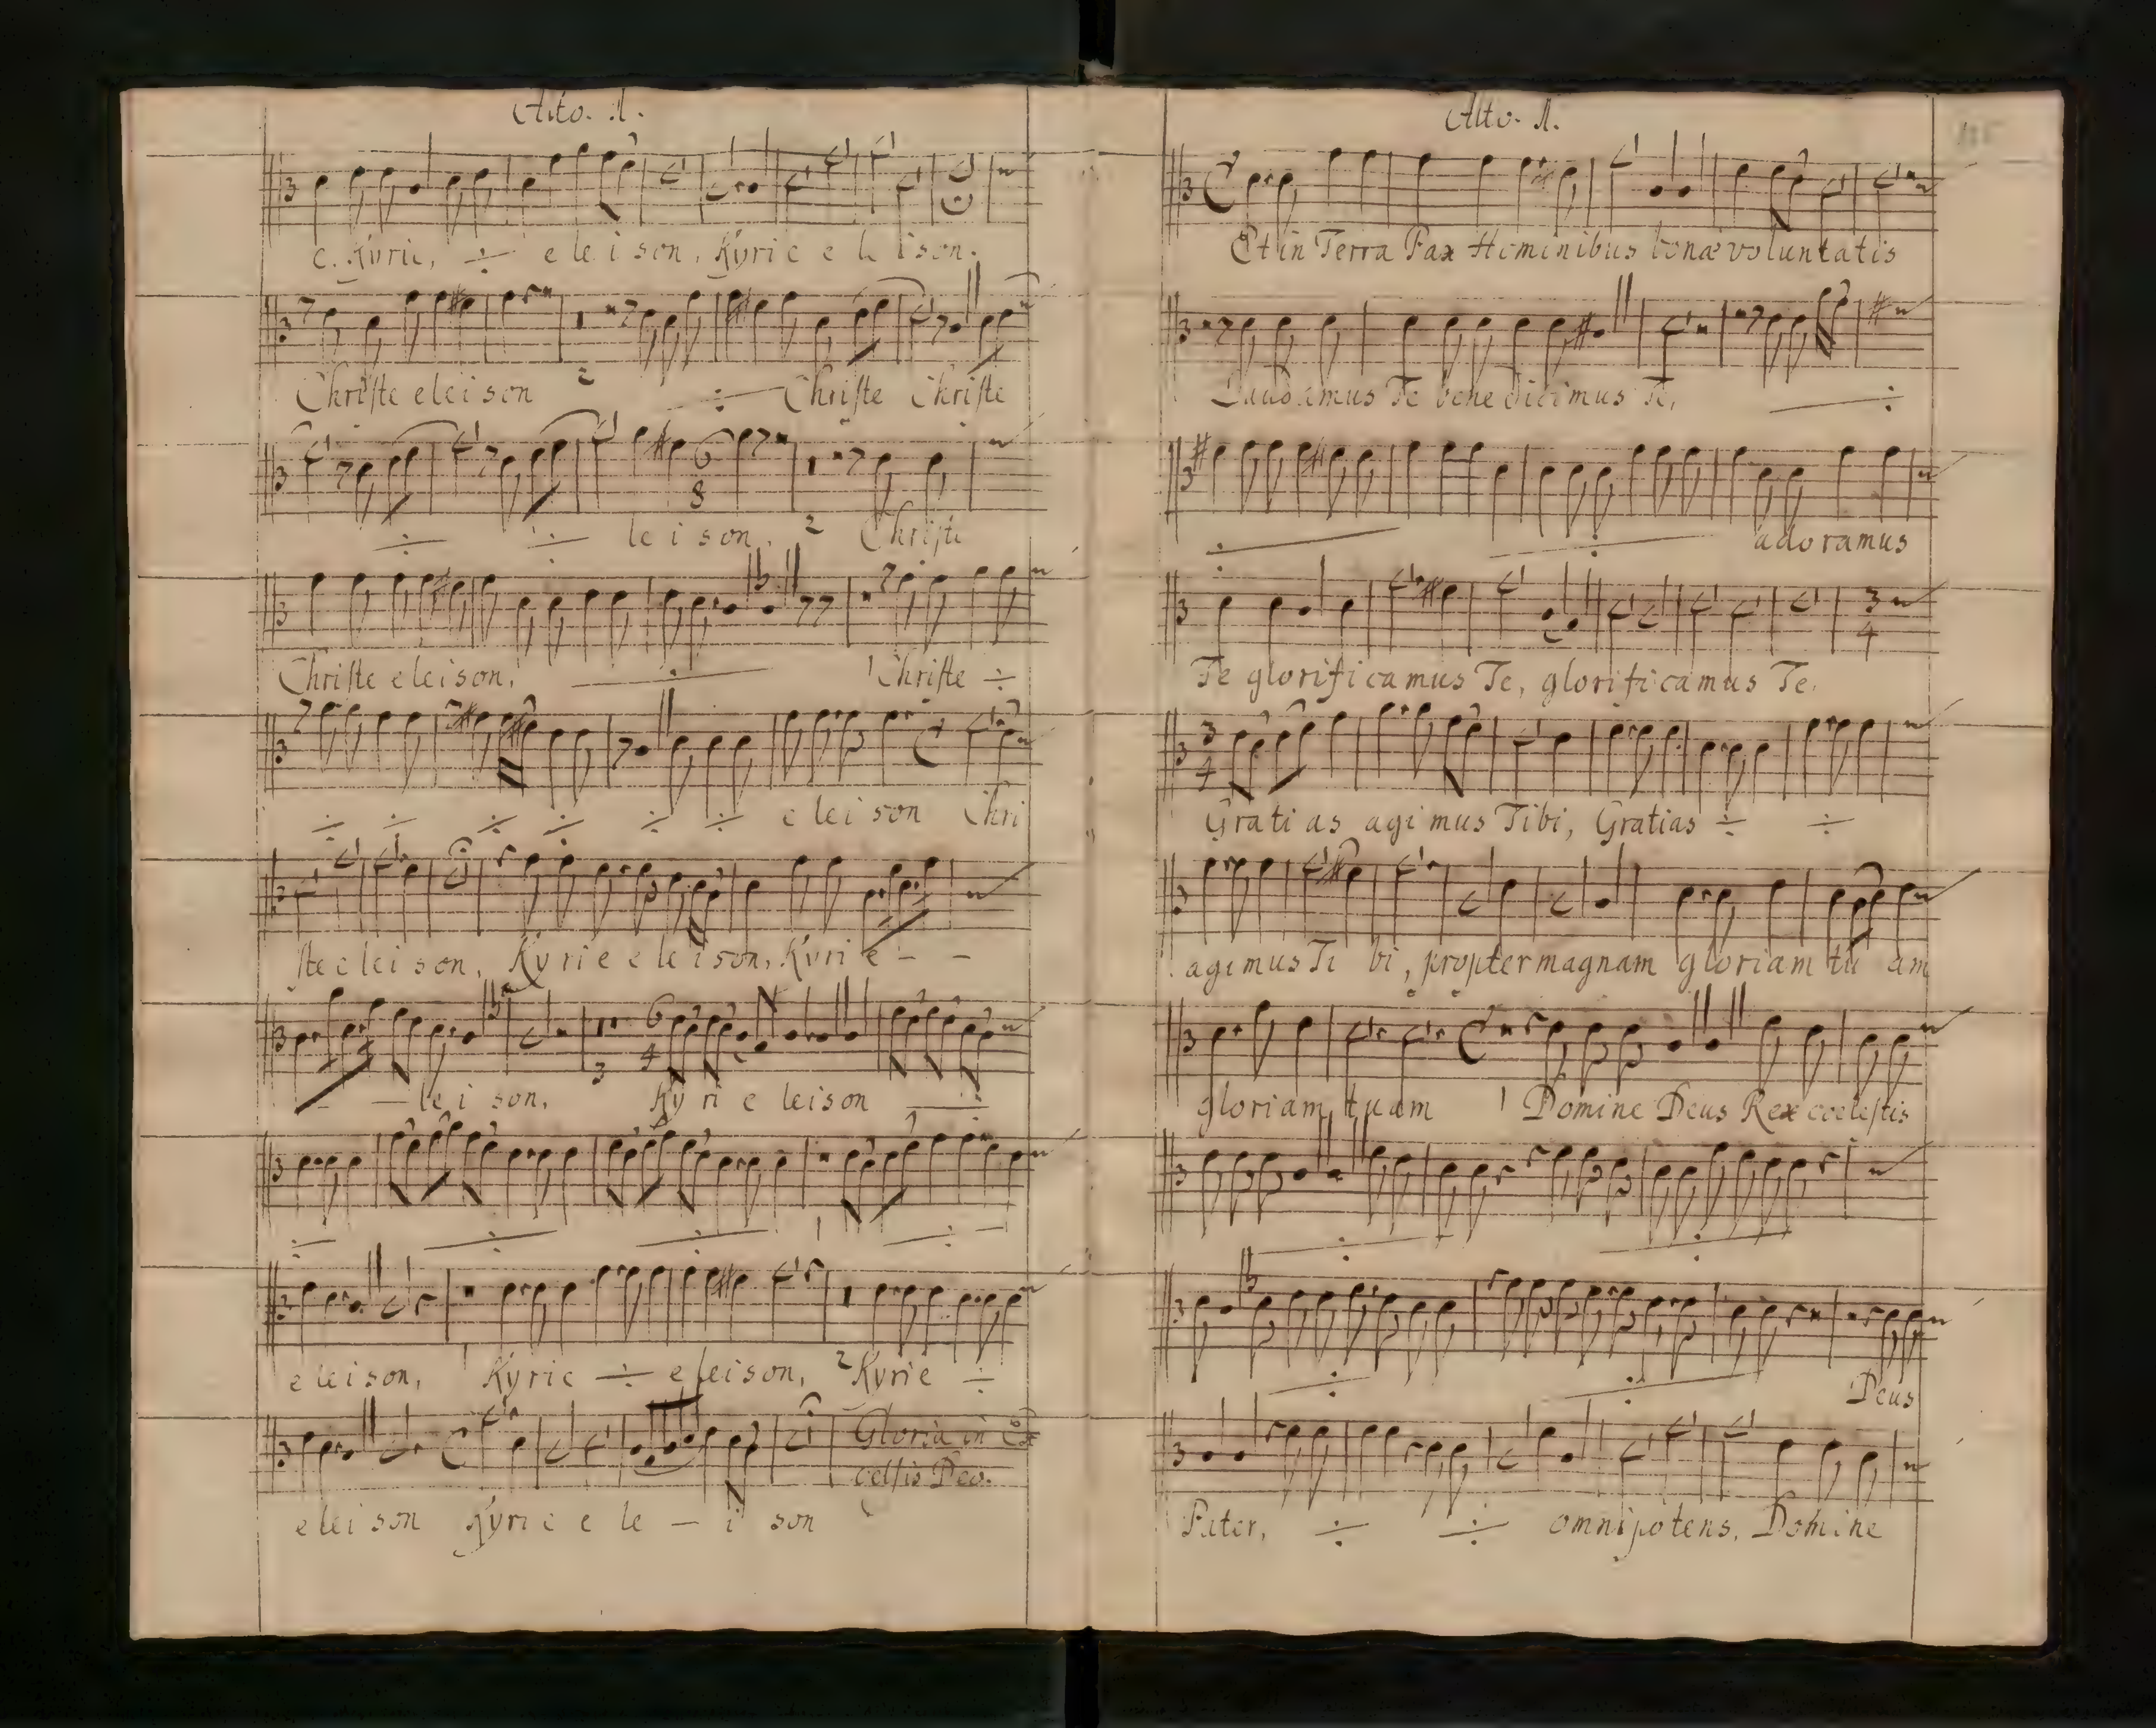 Alto. 1.
e. Kyrie, ÷ eleison, Kyrie eleison.
Christe eleison 2 ÷ Christe Christe
÷ ÷ leison. 2 Christe
Christe eleison, ÷ 1 Christe ÷
÷ ÷ ÷ ÷ ÷ ÷ eleison Chri
ste eleison, Kyrie eleison, Kyrie - -
- - lei son, 3 Kyrie leison ÷
÷ ÷ ÷ 1 ÷
eleison, 1 Kyrie ÷ eleison, 2 Kyrie ÷
Gloria in Ex
celsis Deo.
eleison Kyrie e le - i son
Alto. 1.
Et in Terra Pax Hominibus bonæ voluntatis
Laudamus Te benedicimus Te, ÷
÷ ÷ adoramus
Te glorificamus Te, glorificamus Te.
Gratias agimus Tibi, Gratias ÷ ÷
agimus Tibi, propter magnam gloriam tu am
gloriam tuam 1 Domine Deus Rex coelestis
÷ ÷
÷ ÷ Deus
Pater, ÷ ÷ omnipotens. Domine